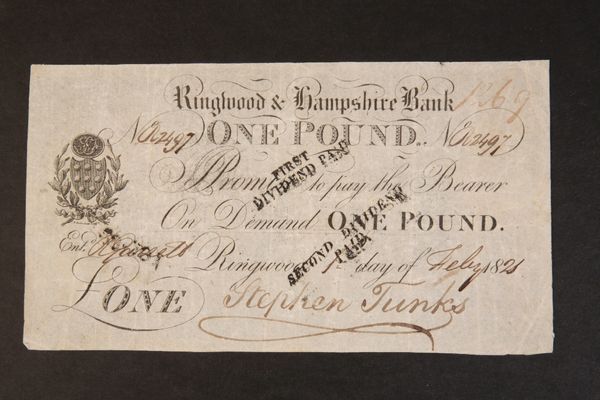 Ringwood & Hampshire Bank
No 2497 ONE POUND. No 2497
I Promise to pay the Bearer
FIRST
DIVIDEND PAID
On Demand ONE POUND.
SECOND DIVIDEND
PAID
Entd
Ringwood 1st day of Feby 1821
£ONE Stephen Tunks